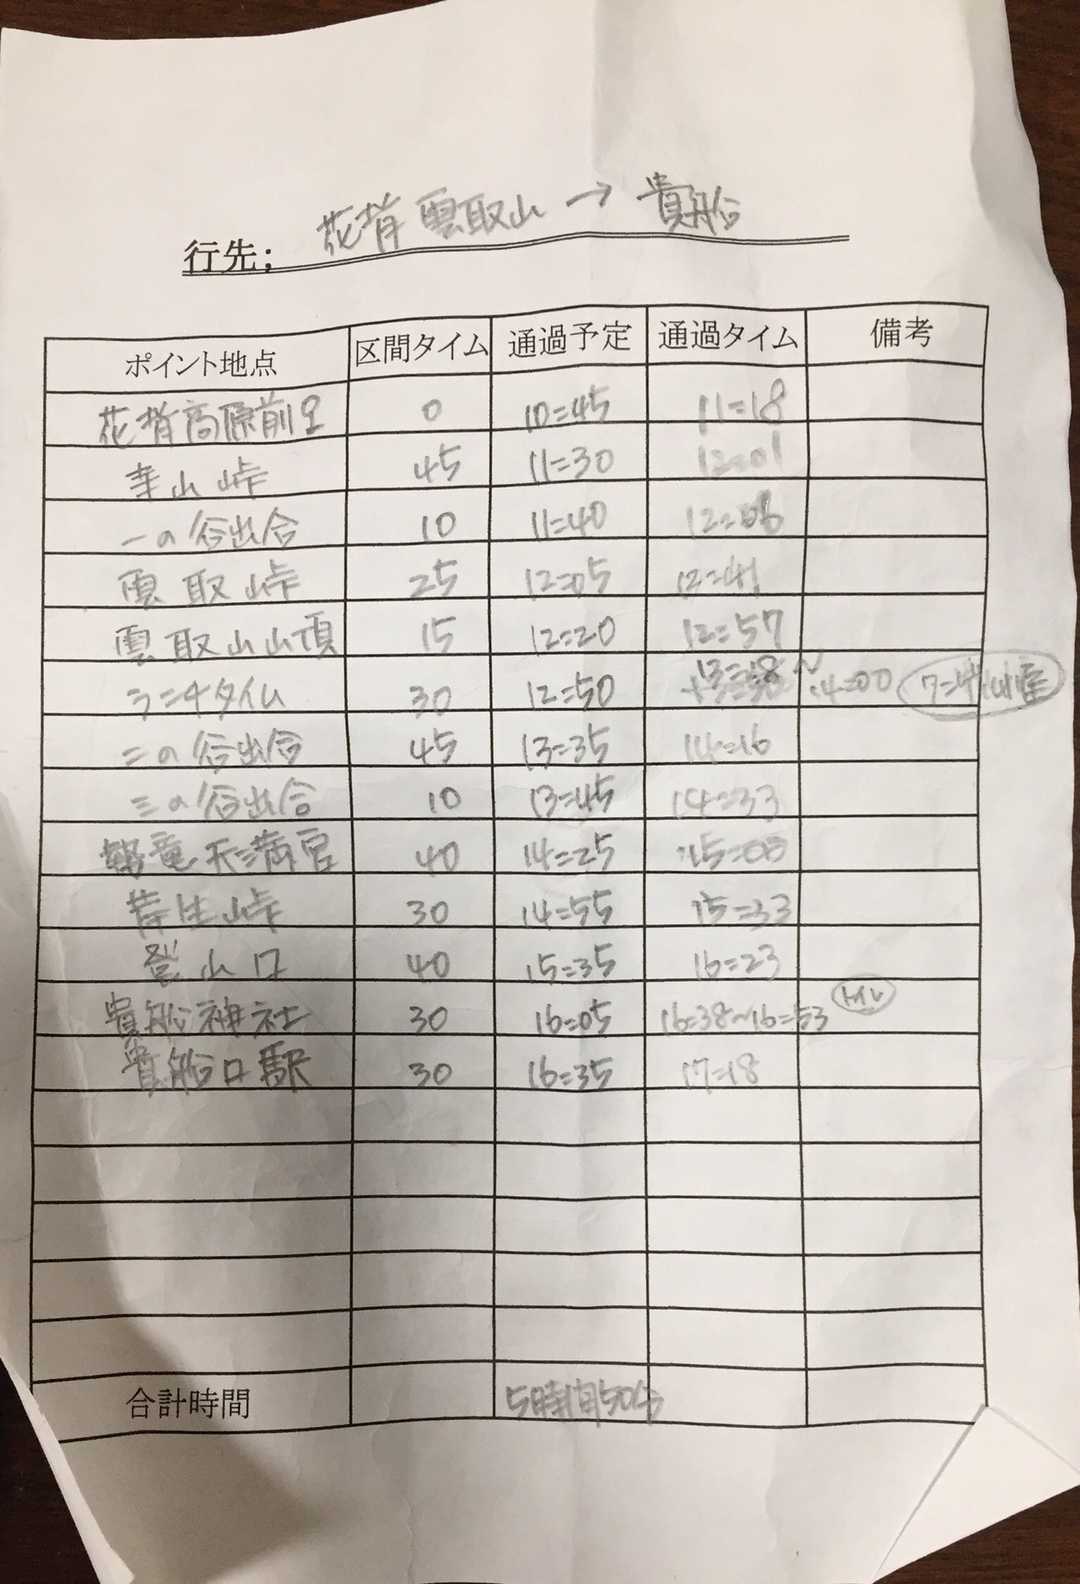 行先; 花背雲取山→貴船
ポイント地点 区間タイム 通過予定 通過タイム 備考
花背高原前 0 10=45 11=18
寺山峠 45 11=30 12=01
一の谷出合 10 11=40 12=08
雲取峠 25 12=05 12=41
雲取山山頂 15 12=20 12=57
ランチタイム 30 12=50 13=18～14=00
二の谷出合 45 13=35 14=16
三の谷出合 10 13=45 14=33
天満宮 40 14=25 15=00
芹生峠 30 14=55 15=33
登山口 40 15=35 16=23
貴船神社 30 16=05 16=38～16=53 トイレ
貴船口駅 30 16=35 17=18
合計時間 5時間50分